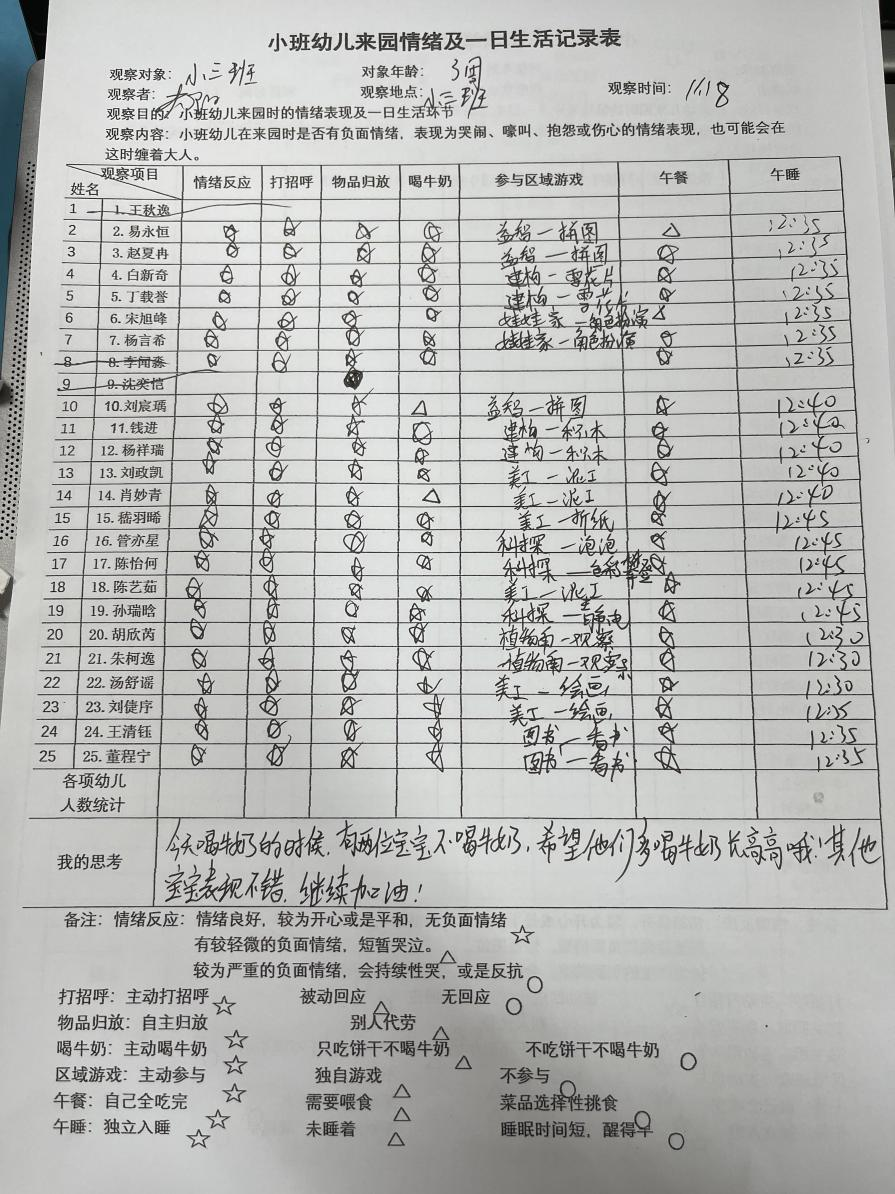 小班幼儿来园情绪及一日生活记录表
观察对象：小三班 对象年龄：3周
观察者： 观察地点：小三班 观察时间：11.18
观察目的：小班幼儿来园时的情绪表现及一日生活环节
观察内容：小班幼儿在来园时是否有负面情绪，表现为哭闹、嚎叫、抱怨或伤心的情绪表现，也可能会在
这时缠着大人。
观察项目 姓名 情绪反应 打招呼 物品归放 喝牛奶 参与区域游戏 午餐 午睡
1 1.王秋逸
2 2.易永恒 ☆ ☆ ☆ ☆ 益智一拼图 △ 12:35
3 3.赵夏冉 ☆ ☆ ☆ ☆ 益智一拼图 ☆ 12:35
4 4.白新奇 ☆ ☆ ☆ ☆ 建构一雪花片 ☆ 12:35
5 5.丁载誉 ☆ ☆ ☆ ☆ 建构一雪花片 ☆ 12:35
6 6.宋旭峰 ☆ ☆ ☆ ☆ 娃娃家一角色扮演 12:35
7 7.杨言希 ☆ ☆ ☆ ☆ 娃娃家一角色扮演 ☆ 12:35
8 8.李闻淼 ☆ ☆ ☆ ☆ ☆ 12:35
9 9.沈奕恺
10 10.刘宸瑀 ☆ ☆ ☆ △ 益智一拼图 ☆ 12:40
11 11.钱进 ☆ ☆ ☆ ☆ 建构一积木 ☆ 12:40
12 12.杨祥瑞 ☆ ☆ ☆ ☆ 建构一积木 ☆ 12:40
13 13.刘政凯 ☆ ☆ ☆ ☆ 美工一泥工 ☆ 12:40
14 14.肖妙青 ☆ ☆ ☆ △ 美工一泥工 ☆ 12:40
15 15.嵇羽晞 ☆ ☆ ☆ ☆ 美工一折纸 ☆ 12:45
16 16.管亦星 ☆ ☆ ☆ ☆ 科探一泡泡 ☆ 12:45
17 17.陈怡何 ☆ ☆ ☆ ☆ 科探一色彩 ☆ 12:45
18 18.陈艺茹 ☆ ☆ ☆ ☆ 美工一泥工 ☆ 12:45
19 19.孙瑞晗 ☆ ☆ ☆ ☆ 科探一 ☆ 12:45
20 20.胡欣芮 ☆ ☆ ☆ ☆ 植物角一观察 ☆ 12:30
21 21.朱柯逸 ☆ ☆ ☆ ☆ 植物角一观察 ☆ 12:30
22 22.汤舒谣 ☆ ☆ ☆ ☆ 美工一绘画 ☆ 12:30
23 23.刘倢序 ☆ ☆ ☆ ☆ 美工一绘画 ☆ 12:35
24 24.王清钰 ☆ ☆ ☆ ☆ 图书一看书 ☆ 12:35
25 25.董程宁 ☆ ☆ ☆ ☆ 图书一看书 ☆ 12:35
各项幼儿
人数统计
我的思考
今天喝牛奶的时候，有两位宝宝不喝牛奶，希望他们多喝牛奶长高高哦！其他
宝宝表现不错，继续加油！
备注：情绪反应：情绪良好，较为开心或是平和，无负面情绪 ☆
有较轻微的负面情绪，短暂哭泣。 △
较为严重的负面情绪，会持续性哭，或是反抗 ○
打招呼：主动打招呼 ☆ 被动回应 △ 无回应 ○
物品归放：自主归放 ☆ 别人代劳 △
喝牛奶：主动喝牛奶 ☆ 只吃饼干不喝牛奶 △ 不吃饼干不喝牛奶 ○
区域游戏：主动参与 ☆ 独自游戏 △ 不参与 ○
午餐：自己全吃完 ☆ 需要喂食 △ 菜品选择性挑食 ○
午睡：独立入睡 ☆ 未睡着 △ 睡眠时间短，醒得早 ○